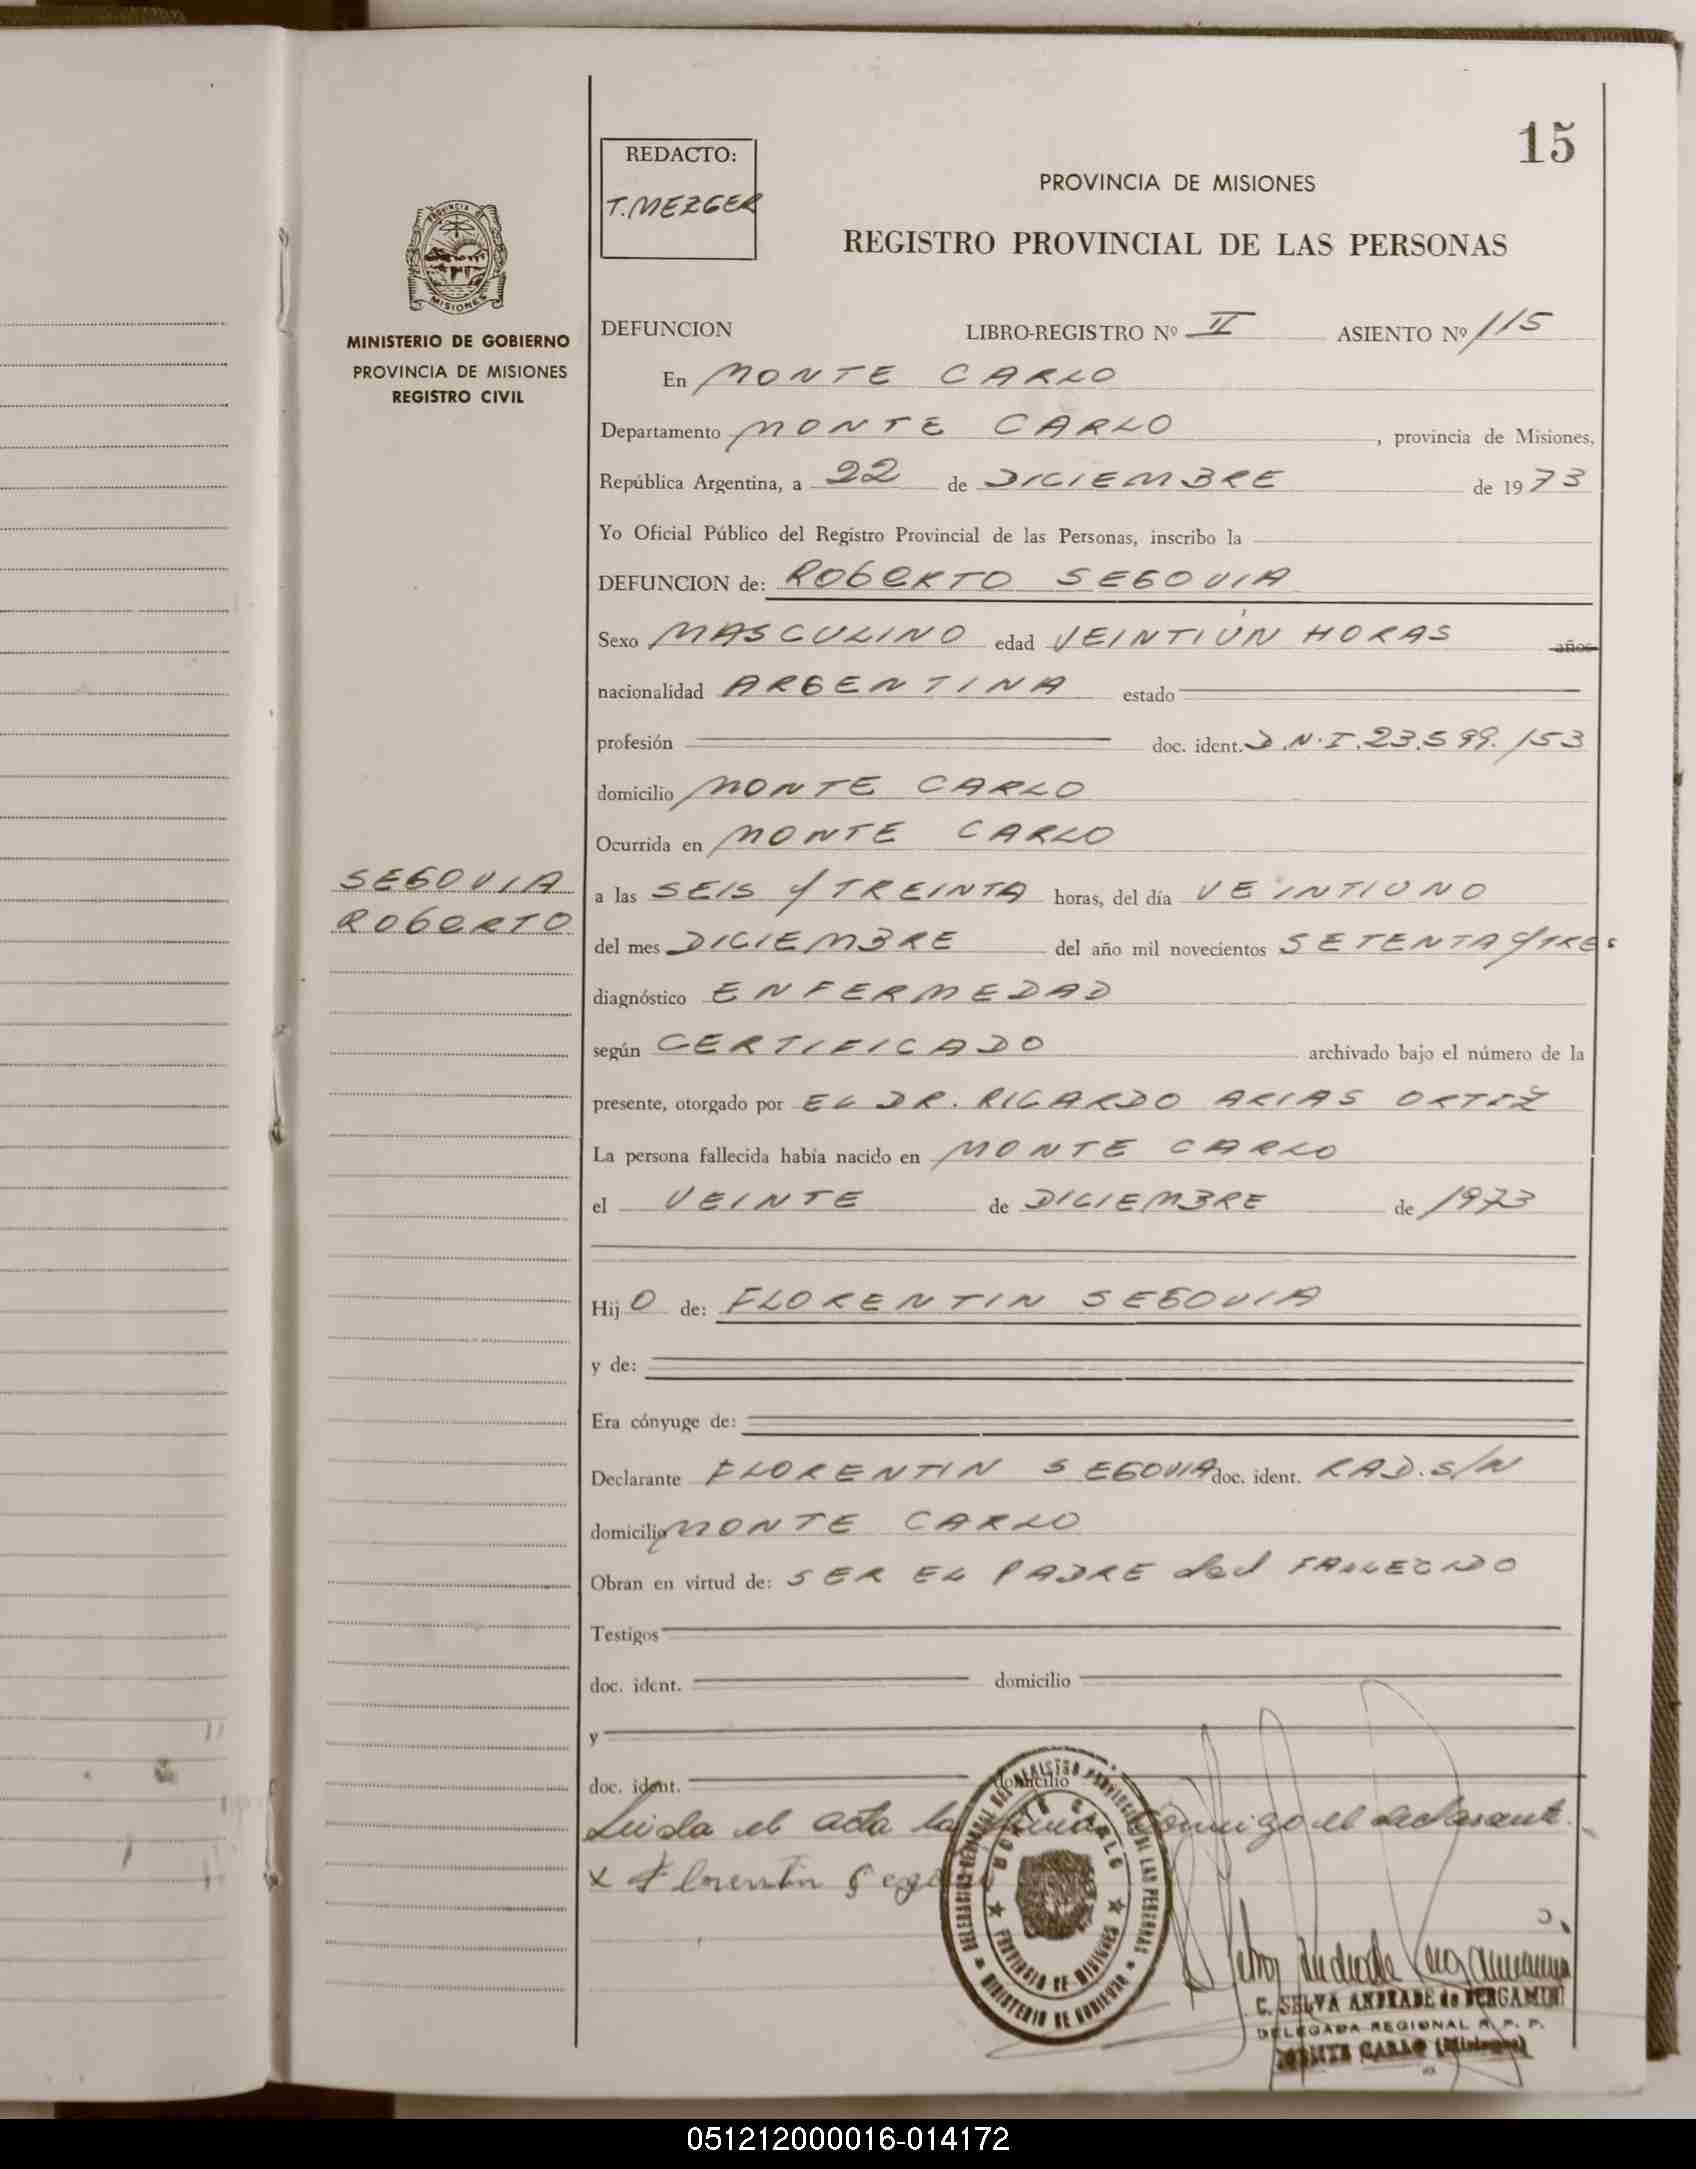 15
REDACTO:
T. MEZGER
PROVINCIA DE MISIONES
REGISTRO PROVINCIAL DE LAS PERSONAS
PROVINCIA DE
MISIONES
MINISTERIO DE GOBIERNO
PROVINCIA DE MISIONES
REGISTRO CIVIL
DEFUNCION LIBRO-REGISTRO Nº II ASIENTO Nº 115
En MONTE CARLO
Departamento MONTE CARLO, provincia de Misiones,
República Argentina, a 22 de DICIEMBRE de 1973
Yo Oficial Público del Registro Provincial de las Personas, inscribo la
DEFUNCION de: ROBERTO SEGOVIA
Sexo MASCULINO edad VEINTIÚN HORAS años
nacionalidad ARGENTINA estado
profesión doc. ident. D.N.I. 23.599.153
domicilio MONTE CARLO
Ocurrida en MONTE CARLO
SEGOVIA
ROBERTO
a las SEIS Y TREINTA horas, del día VEINTIUNO
del mes DICIEMBRE del año mil novecientos SETENTA Y TRES
diagnóstico ENFERMEDAD
según CERTIFICADO archivado bajo el número de la
presente, otorgado por EL DR. RICARDO ARIAS ORTIZ
La persona fallecida había nacido en MONTE CARLO
el VEINTE de DICIEMBRE de 1973
Hij O de: FLORENTIN SEGOVIA
y de:
Era cónyuge de:
Declarante FLORENTIN SEGOVIA doc. ident. RAD. S/N
domicilio MONTE CARLO
Obran en virtud de: SER EL PADRE del FALLECIDO
Testigos
doc. ident. domicilio
y
doc. ident. domicilio
Leida el acta la firma conmigo el declarante.
x Florentin Segovia
DELEGACION REGIONAL DEL REGISTRO PROVINCIAL DE LAS PERSONAS
MINISTERIO DE GOBIERNO
MONTE CARLO
PROVINCIA DE MISIONES
C. SELVA ANDRADE de BERGAMINI
DELEGADA REGIONAL R. P. P.
MONTE CARLO (Misiones)
051212000016-014172